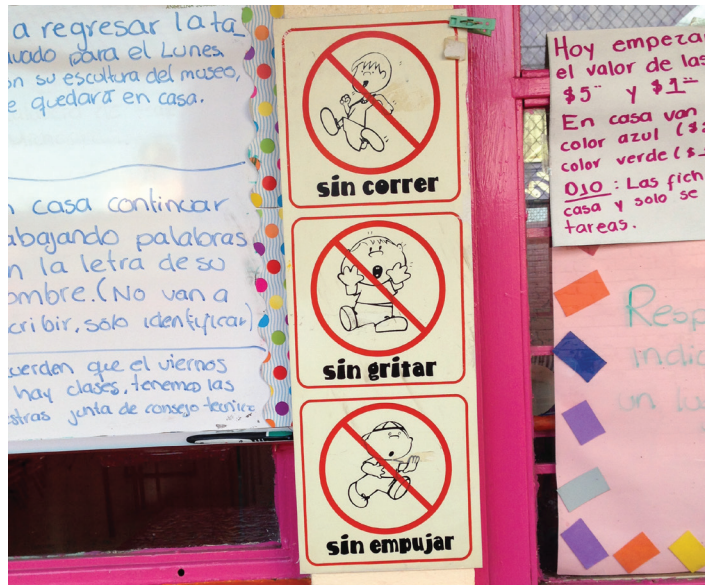 a regresar la ta
vado para el Lunes
on su escultura del museo,
e quedará en casa.
casa continuar
abajando palabras
n la letra de su
ombre. (No van a
cribir, sólo identificar)
uerden que el viernes
hay clases, tenemos las
stras junta de consejo técnico
sin correr
sin gritar
sin empujar
Hoy empeza
el valor de las
$5 y $1
En casa van
color azul ($
color verde ($
OJO: Las fich
casa y solo se
tareas.
Resp
indic
un lu